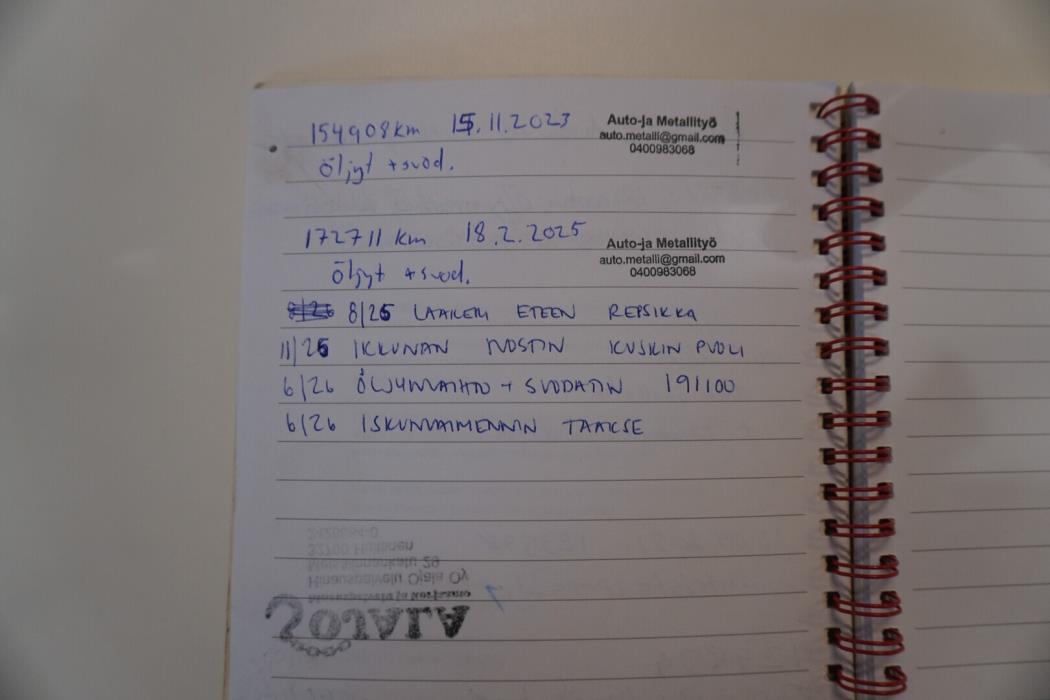 154908 km 15.11.2023
Auto-ja Metallityö
auto.metalli@gmail.com
0400983068
öljyt + suod.
172711 km 18.2.2025
Auto-ja Metallityö
auto.metalli@gmail.com
0400983068
öljyt + suod.
8/25 LAAKERI ETEEN REPSIKKA
11/25 IKKUNAN NOSTIN KUSKIN PUOLI
6/26 ÖLJYNVAIHTO + SUODATIN 191100
6/26 ISKUNVAIMENNIN TAAKSE
2428684-0
32700 Huittinen
29
Hinauspalvelu Ojala Oy
OJALA